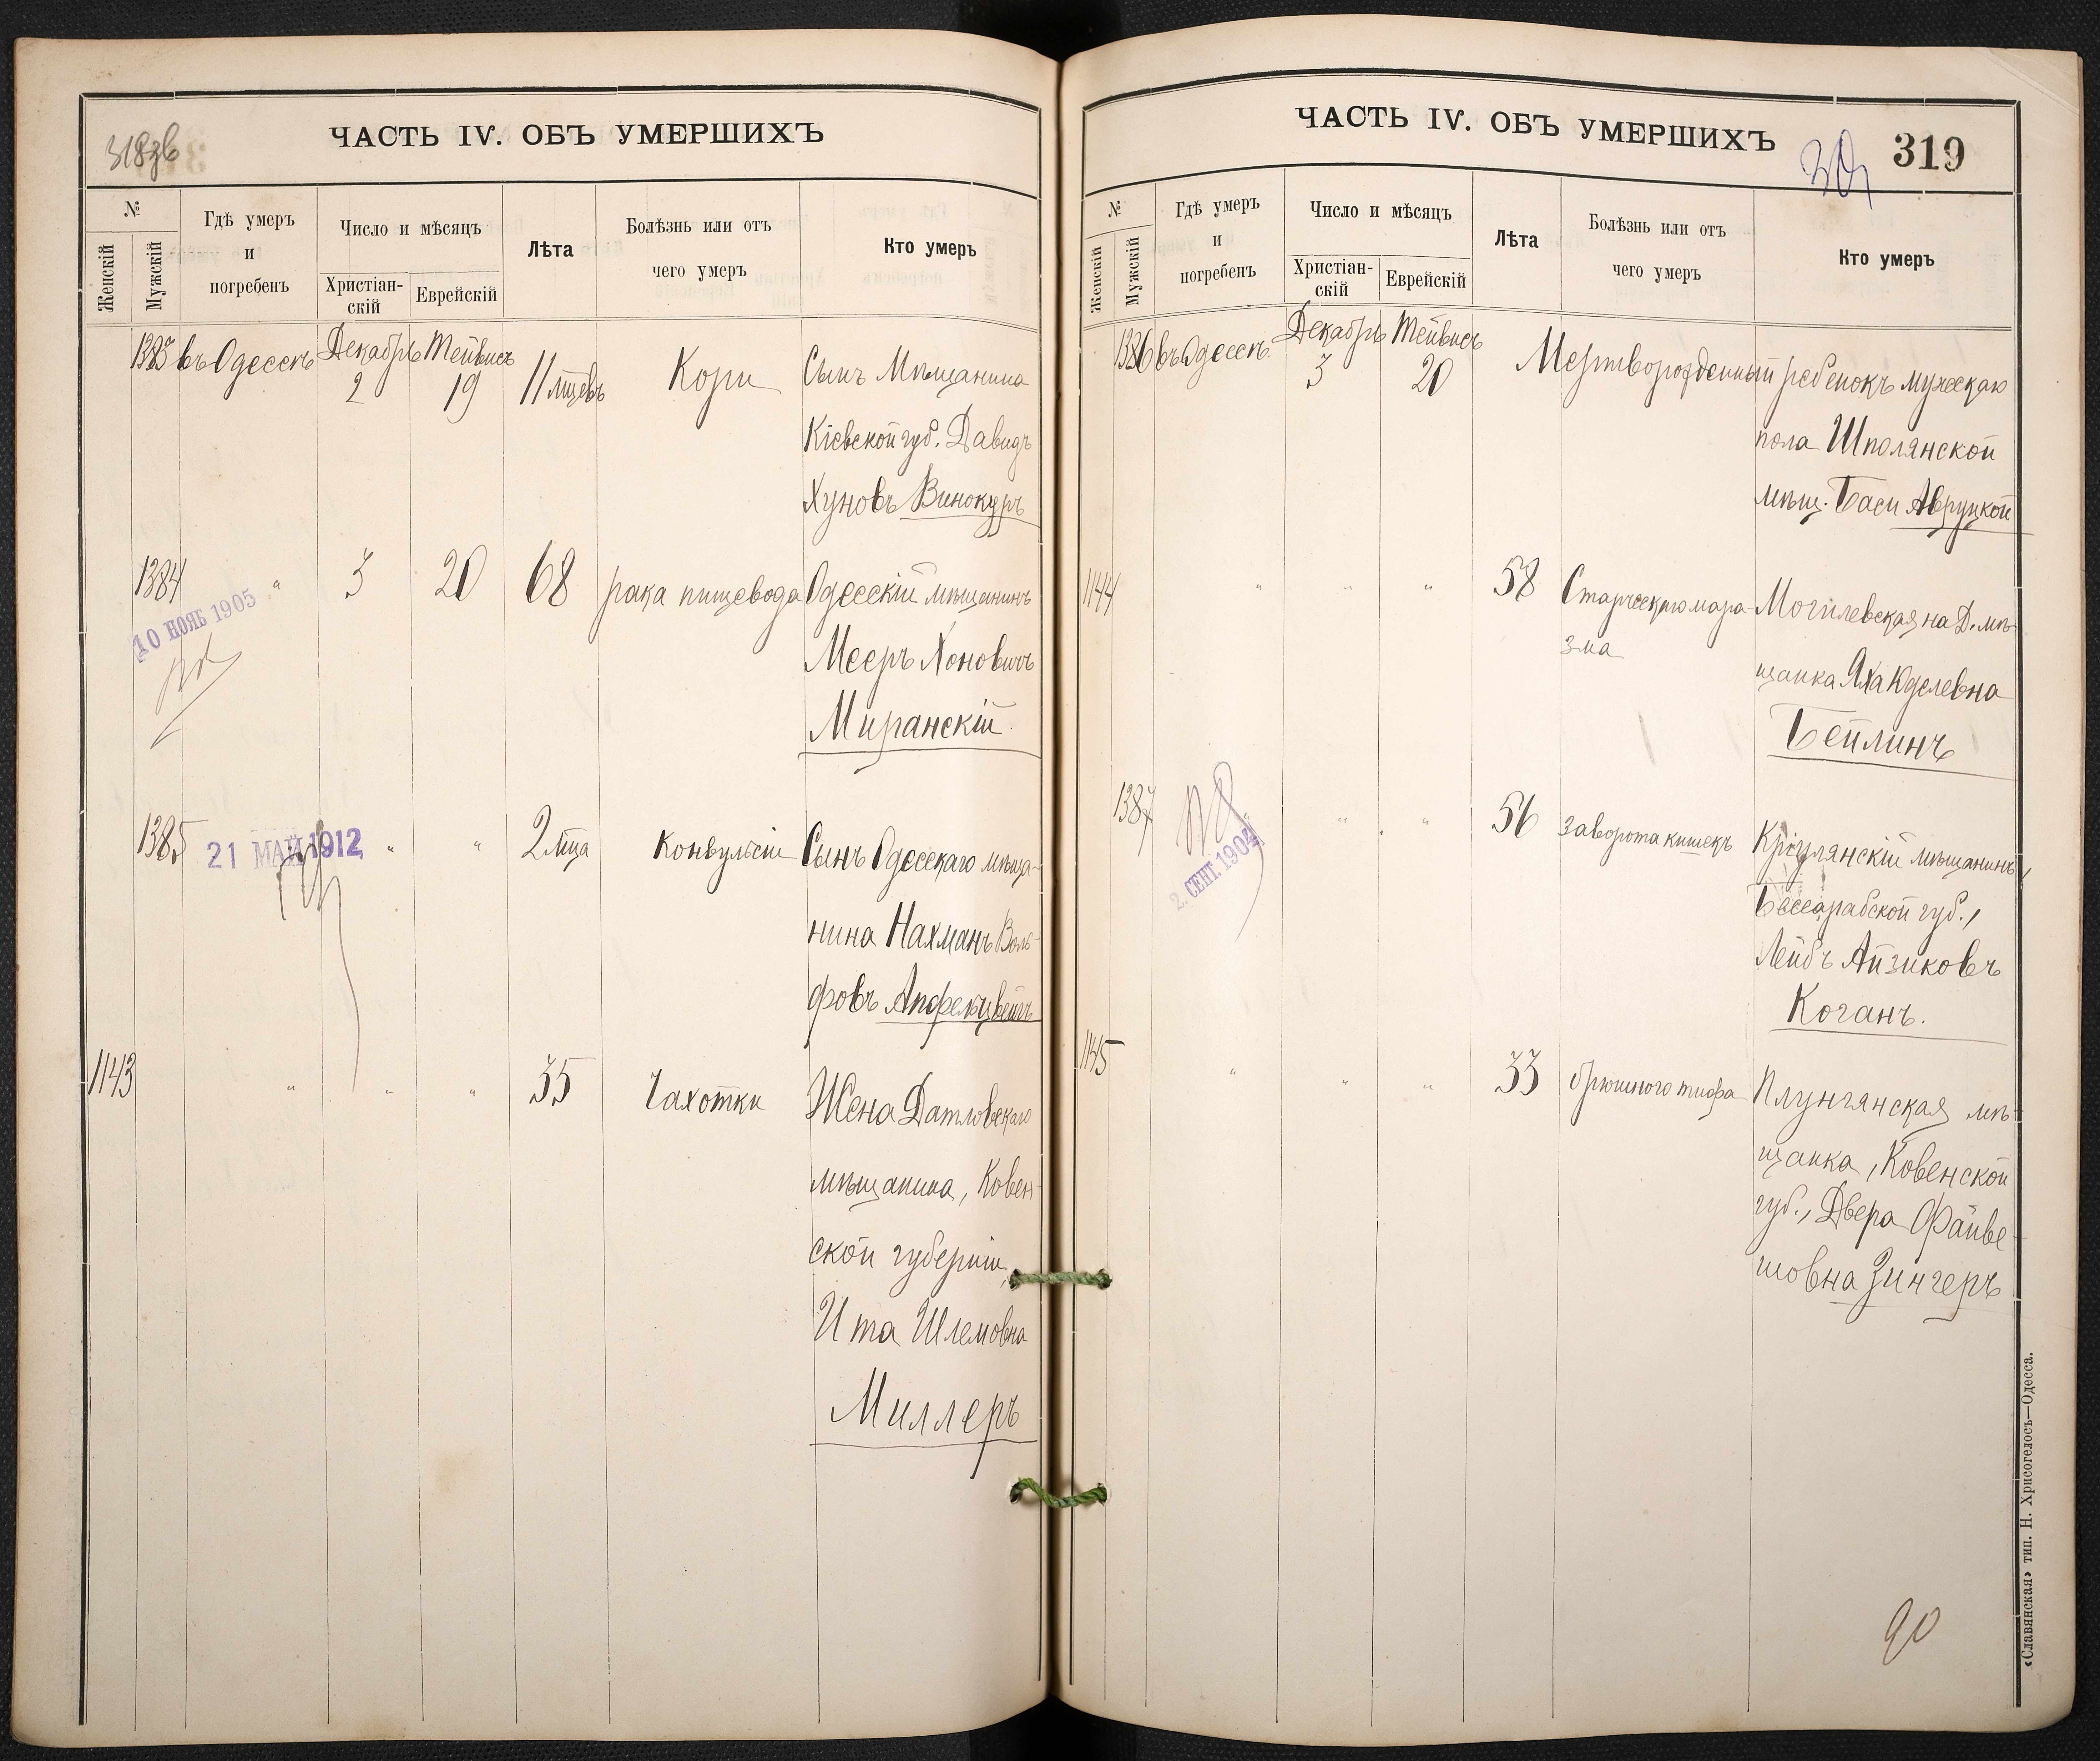 318 зв
ЧАСТЬ IV. ОБЪ УМЕРШИХЪ
№
Женскій
Мужскій
Гдѣ умеръ
и
погребенъ
Число и мѣсяцъ
Христіан-
скій
Еврейскій
Лѣта
Болѣзнь или отъ
чего умеръ
Кто умеръ
1383 въ Одессѣ Декабрь 2 Тейвисъ 19 11 мцевъ Кори Сынъ Мѣщанина
Кіевской губ. Давидъ
Хуновъ Винокуръ
1384 " 3 20 68 рака пищевода Одесскій мѣщанинъ
10 НОЯБ 1905
Мееръ Хоновичъ
Миранскій
1385 21 МАЙ 1912 " " 2 мца Конвульсіи Сынъ Одесскаго мѣща-
нина Нахманъ Воль-
фовъ Апфельцвейгъ
1143 " " " 35 Чахотки Жена Датловскаго
мѣщанина, Ковен-
ской губерніи,
Ита Шлемовна
Миллеръ
ЧАСТЬ IV. ОБЪ УМЕРШИХЪ
319
№
Женскій
Мужскій
Гдѣ умеръ
и
погребенъ
Число и мѣсяцъ
Христіан-
скій
Еврейскій
Лѣта
Болѣзнь или отъ
чего умеръ
Кто умеръ
1386 въ Одессѣ Декабрь 3 Тейвисъ 20 Мертворожденный ребенокъ мужскаго
пола Шполянской
мѣщ. Баси Авруцкой
1144 " " " 58 Старческаго мара- Могилевская на Д. мѣ-
зма
щанка Яха Юделевна
Бейлинъ
1387 " " " 56 заворота кишекъ Кріулянскій мѣщанинъ,
2. СЕНТ. 1904
Бессарабской губ.,
Лейбъ Айзиковъ
Коганъ.
1145 " " " 33 брюшного тифа Плунгянская мѣ-
щанка, Ковенской
губ., Двера Файве-
шовна Зингеръ
90
«Славянская» тип. Н. Хрисогелосъ—Одесса.